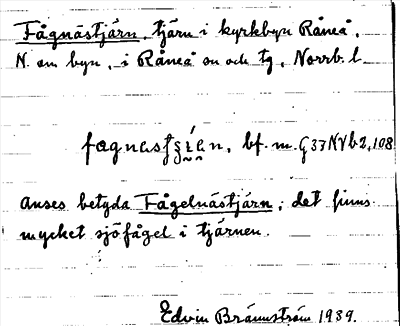 Fågnästjärn, tjärn i kyrkbyn Råneå,
N. om byn, i Råneå sn och tg, Norrb. l.
bf. m. G 33 NVb2,108
anses betyda Fågelnästjärn; det finns
mycket sjöfågel i tjärnen.
Edvin Brännström 1939.